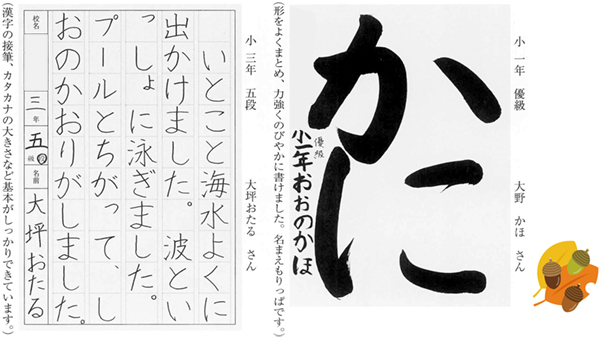 小一年 優級 大野 かほ さん
かに
優級
小一年おおのかほ
(形をよくまとめ、力強くのびやかに書けました。名まえもりっぱです。)
小三年 五段 大坪おたる さん
いとこと海水よくに
出かけました。波とい
っしょに泳ぎました。
プールとちがって、し
おのかおりがしました。
校名 三年 五 級 段 名前 大坪おたる
(漢字の接筆、カタカナの大きさなど基本がしっかりできています。)